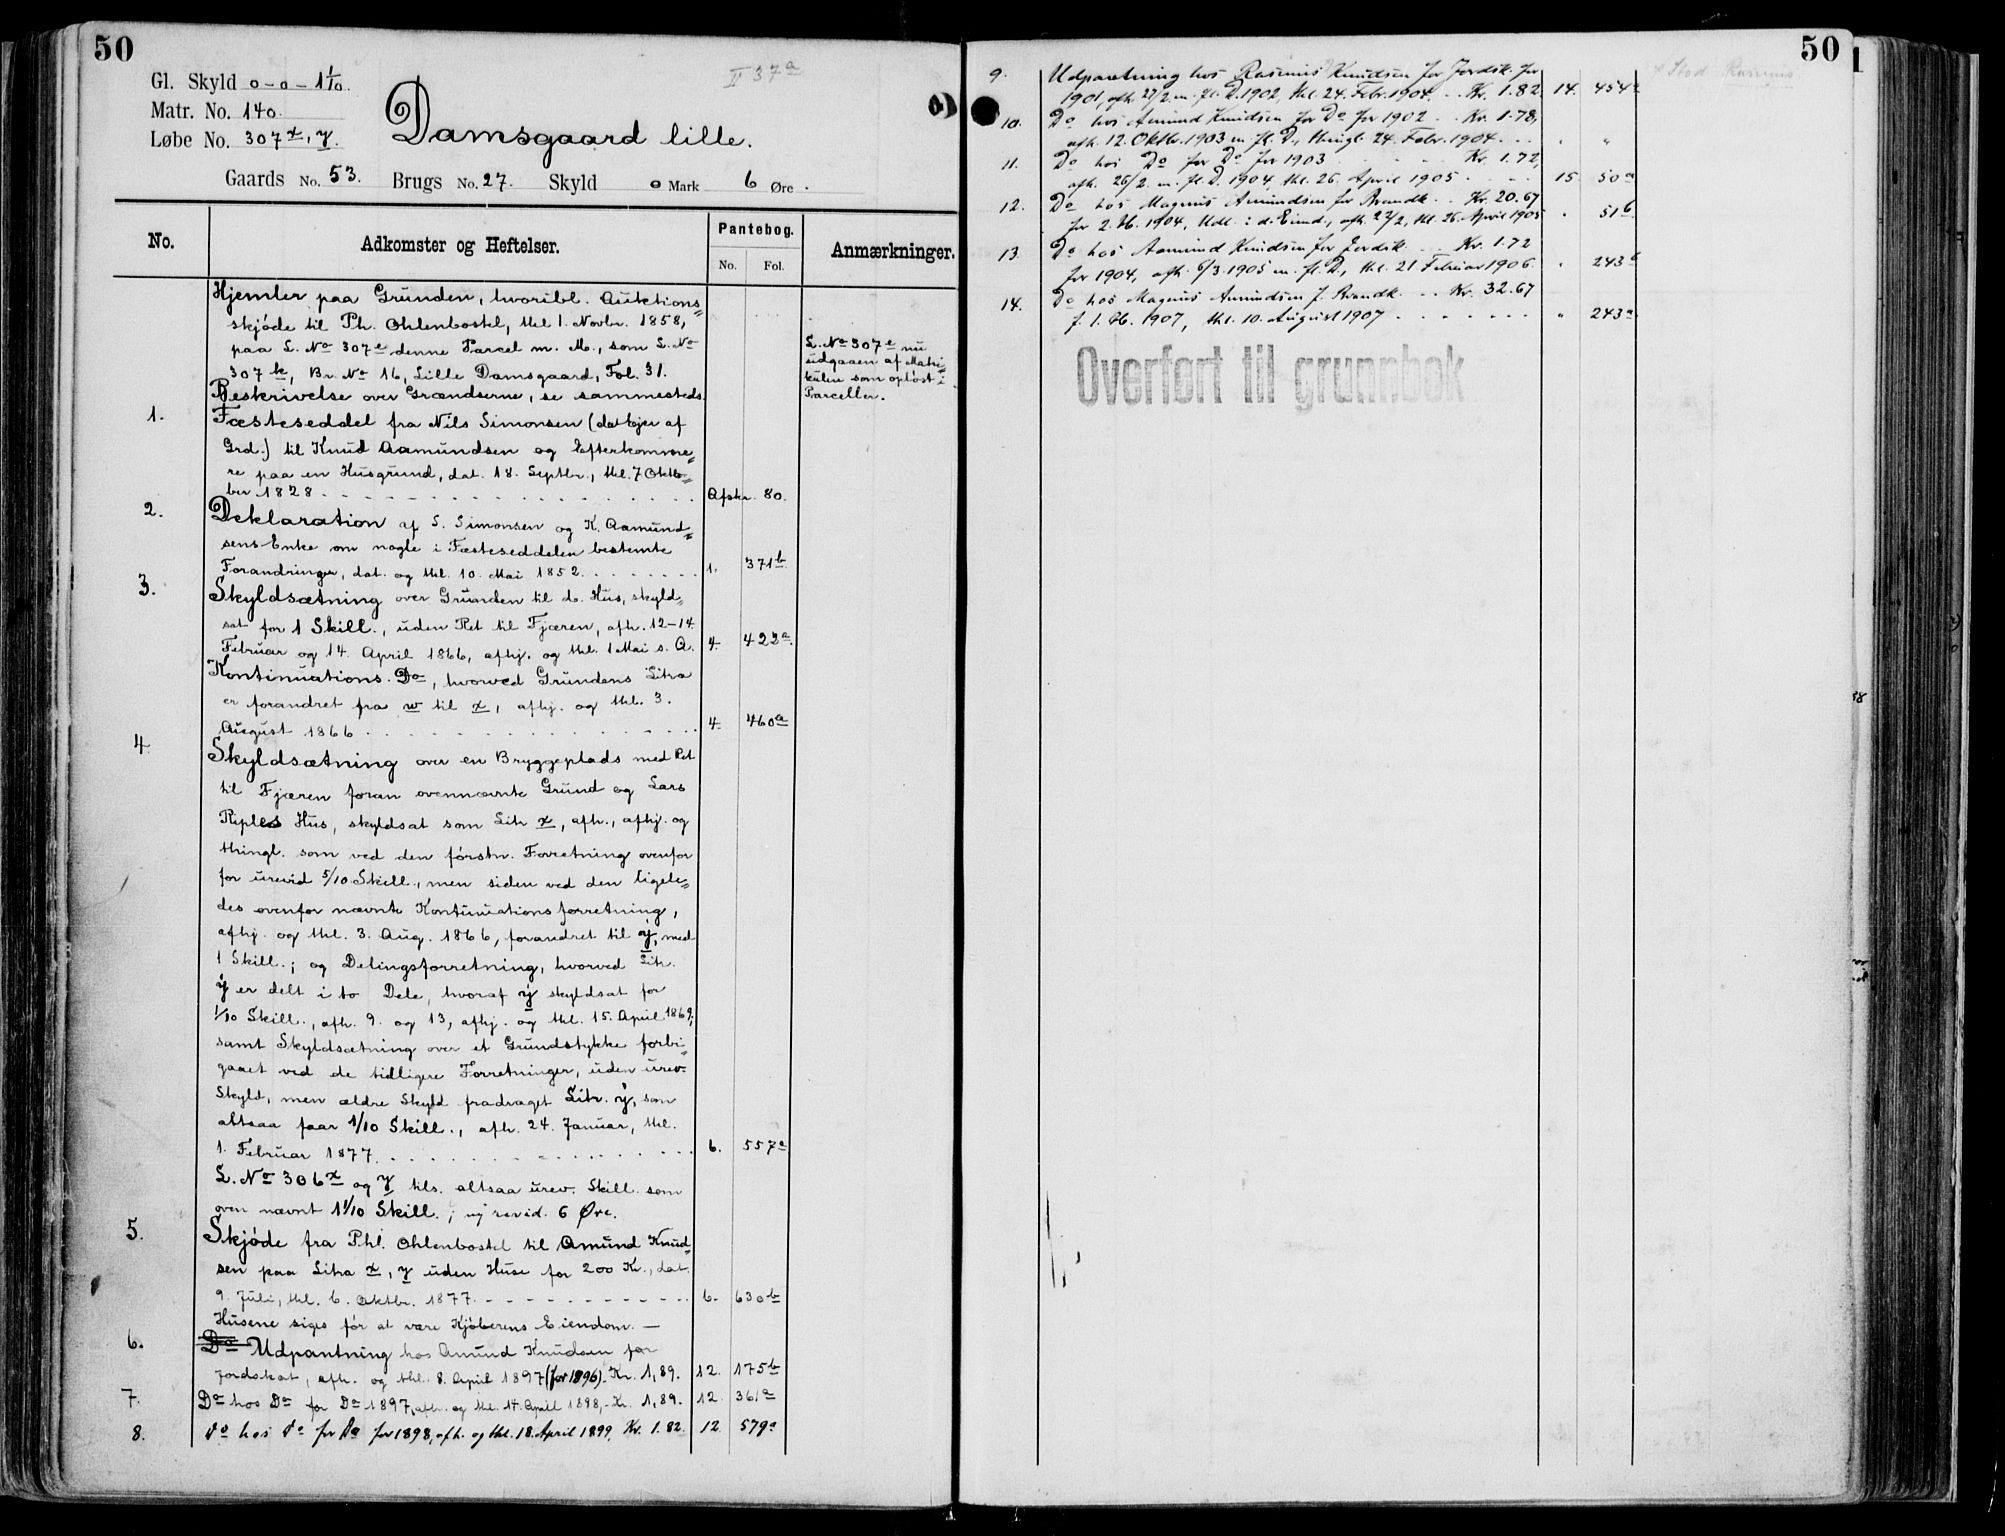 50
Gl. Skyld 0-0-1 1/10.
II 37a
Matr. No. 140.
Løbe No. 307 x, y.
Damsgaard lille.
Gaards No. 53. Brugs No. 27. Skyld 0 Mark 6 Øre.
No.
Adkomster og Heftelser.
Pantebog.
No. Fol.
Anmærkninger.
Hjemler paa Grunden, hvoribl. Auktions-
skjøde til Ph. Ohlenbostel, thl 1. Novbr. 1858,
paa L. No 307e denne Parcel m. M., som L. No
307 k, Br. No 16, Lille Damsgaard, Fol. 31.
Beskrivelse over Grændserne, se sammesteds.
L. No 307e nu
udgaaen af Matri-
kulen som opløst i
Parceller.
1. Fæsteseddel fra Nils Simonsen (dat Ejer af
Grd.) til Knud Aamundsen og Efterkomme-
re paa en Husgrund, dat. 18. Septbr., thl. 7 Okto-
ber 1828 Afskr. 80.
2. Deklaration af S. Simonsen og K. Aamund-
sens Enke om nogle i Fæsteseddelen bestemte
Forandringer, dat. og thl. 10. Mai 1852 1. 371b
3. Skyldsætning over Grunden til d. Hus, skyld-
sat for 1 Skill., uden Ret til Fjæren, afh. 12-14.
Februar og 14. April 1866, afhj. og thl. 1 Mai s. A. 4. 422a.
Kontinuations Do, hvorved Grundens Litra
er forandret fra w til x, afhj. og thl. 3.
August 1866 4. 460a
4. Skyldsætning over en Bryggeplads med Ret
til Fjæren foran ovennævnte Grund og Lars
Riples Hus, skyldsat som Litr x, afh., afhj. og
thingl. som ved den førstn. Forretning ovenfor
for urevid 5/10 Skill., men siden ved den ligele-
des ovenfor nævnte Kontinuationsforretning,
afhj. og thl. 3. Aug. 1866, forandret til y, med
1 Skill.; og Delingsforretning, hvorved Litr.
y er delt i to Dele, hvoraf y skyldsat for
1/10 Skill., afh. 9. og 13, afhj. og thl. 15. April 1869;
samt Skyldsætning over et Grundstykke forbi-
gaaet ved de tidligere Forretninger, uden urev.
Skyld, men ældre Skyld fradraget Litr. y, som
altsaa faar 1/10 Skill., afh. 24. Januar, thl.
1. Februar 1877. 6. 557a
L. No 306x og y tils. altsaa urev. Skill. som
oven nævnt 1 1/10 Skill.; ny revid. 6 Øre.
5. Skjøde fra Phl. Ohlenbostel til Amund Knud-
sen paa Litra x, y uden Huse for 200 Kr., dat.
9. Juli, thl. 6. Oktbr. 1877 6. 630b
Husene siges før at være Kjøberens Eiendom. —
6. Do Udpantning hos Amund Knudsen for
Jordskat, afh. og thl. 8. April 1897 (for 1896). Kr. 1,89. 12. 175b
7. Do hos Do for Do 1897, afh. og thl. 14. April 1898, Kr. 1,89. 12. 361a
8. do hos do for Do for 1898, afh. og thl. 18. April 1899, Kr. 1.82. 12 579a
50
9. Udpantning hos Rasmus Knudsen for Jordsk. for
1901, afh. 27/2 m. fl. D. 1902, thl. 24. Febr. 1904. Kr. 1.82 14. 454a
10. Do hos Amund Knudsen for Do for 1902 Kr. 1.78,
afh. 12. Oktbr. 1903 m. fl. D., thingl. 24. Febr. 1904 " "
11. Do hos Do for Do for 1903 Kr. 1.72,
afh. 26/2. m. fl. D. 1904, thl. 26. April 1905 15 50a
12. Do hos Magnus Amundsen for Brandk. Kr. 20.67
for 2. H. 1904, Udl. i d. Eiend., afh. 27/2, thl. 26. April 1905 " 51b
13. Do hos Aamund Knudsen for Jordsk. Kr. 1.72
for 1904, afh. 6/3 1905 m. fl. D., thl. 21 Februar 1906. " 243b
14. Do hos Magnus Amundsen f. Brandk. Kr. 32.67
f. 1. H. 1907, thl. 10. August 1907 " 243a
Overført til grunnbok